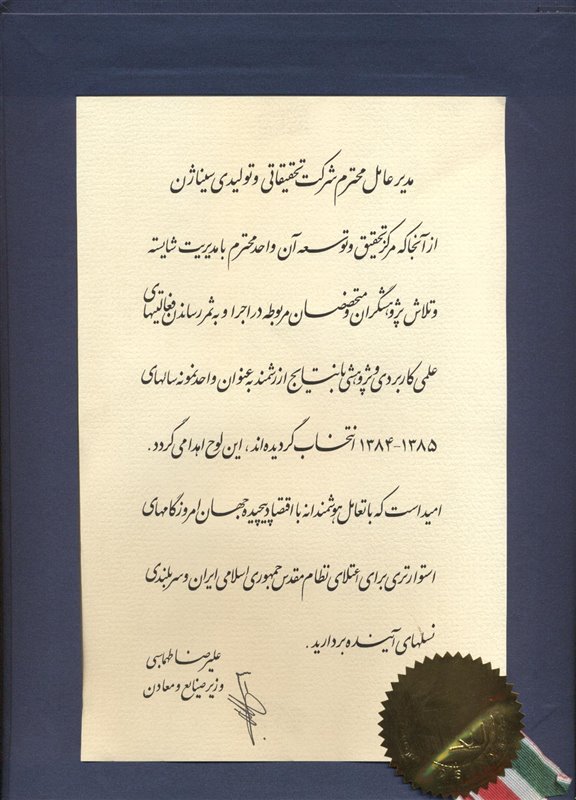 مدیر عامل محترم شرکت تحقیقاتی و تولیدی سیناژن
از آنجا که مرکز تحقیق و توسعه آن واحد محترم با مدیریت شایسته
و تلاش پژوهشگران و متخصصان مربوطه در اجرا و به ثمر رساندن فعالیتهای
علمی کاربردی و پژوهشی با نتایج ارزشمند به عنوان واحد نمونه سالهای
۱۳۸۴-۱۳۸۵ انتخاب گردیده اند ، این لوح اهدا می گردد .
امید است که با تعامل هوشمندانه با اقتصاد پیچیده جهان امروز گامهای
استوارتری برای اعتلای نظام مقدس جمهوری اسلامی ایران و سربلندی
نسلهای آینده بردارید .
علیرضا طهماسبی
وزیر صنایع و معادن